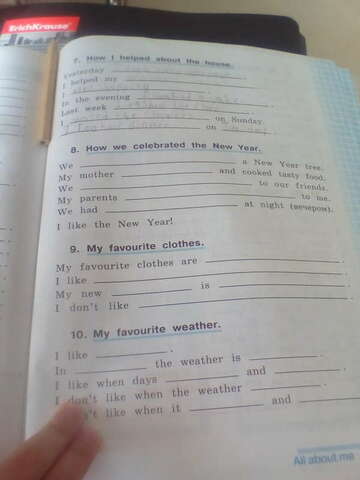 ErichKrause
7. How I helped about the house.
Yesterday
I helped my
I
In the evening
Last week
on Sunday.
on
8. How we celebrated the New Year.
We ____ a New Year tree.
My mother ____ and cooked tasty food.
We ____ to our friends.
My parents ____ to me.
We had ____ at night (вечером).
I like the New Year!
9. My favourite clothes.
My favourite clothes are ____.
I like ____.
My new ____ is ____.
I don't like ____.
10. My favourite weather.
I like ____.
In ____ the weather is ____.
I like when days ____ and ____.
I don't like when the weather ____.
like when it ____ and ____.
All about me